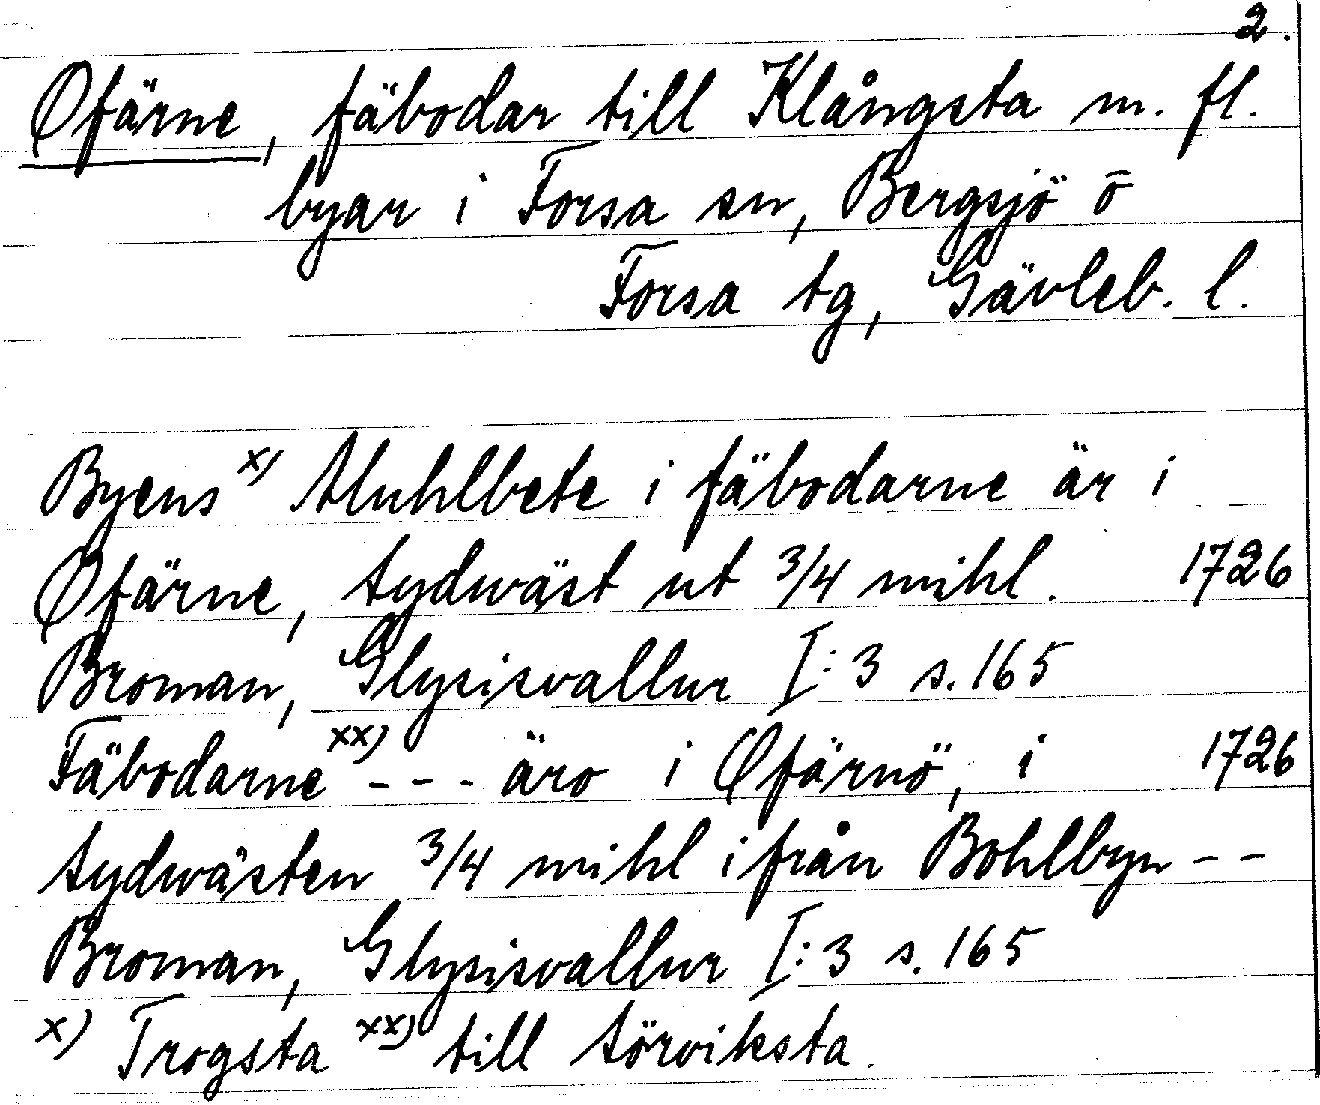 2.
Ofärne, fäbodar till Klångsta m. fl.
byar i Forsa sn, Bergsjö o
Forsa tg, Gävleb. l.
Byens x) Muhlbete i fäbodarne är i
Ofärne, sydwäst ut 3/4 mihl. 1726
Broman, Glysisvallur I:3 s. 165
Fäbodarne xx) - - - äro i Ofärnö, i 1726
sydwästen 3/4 mihl ifrån Bohlbyn - -
Broman, Glysisvallur I:3 s. 165
x) Trogsta xx) till Sörviksta.